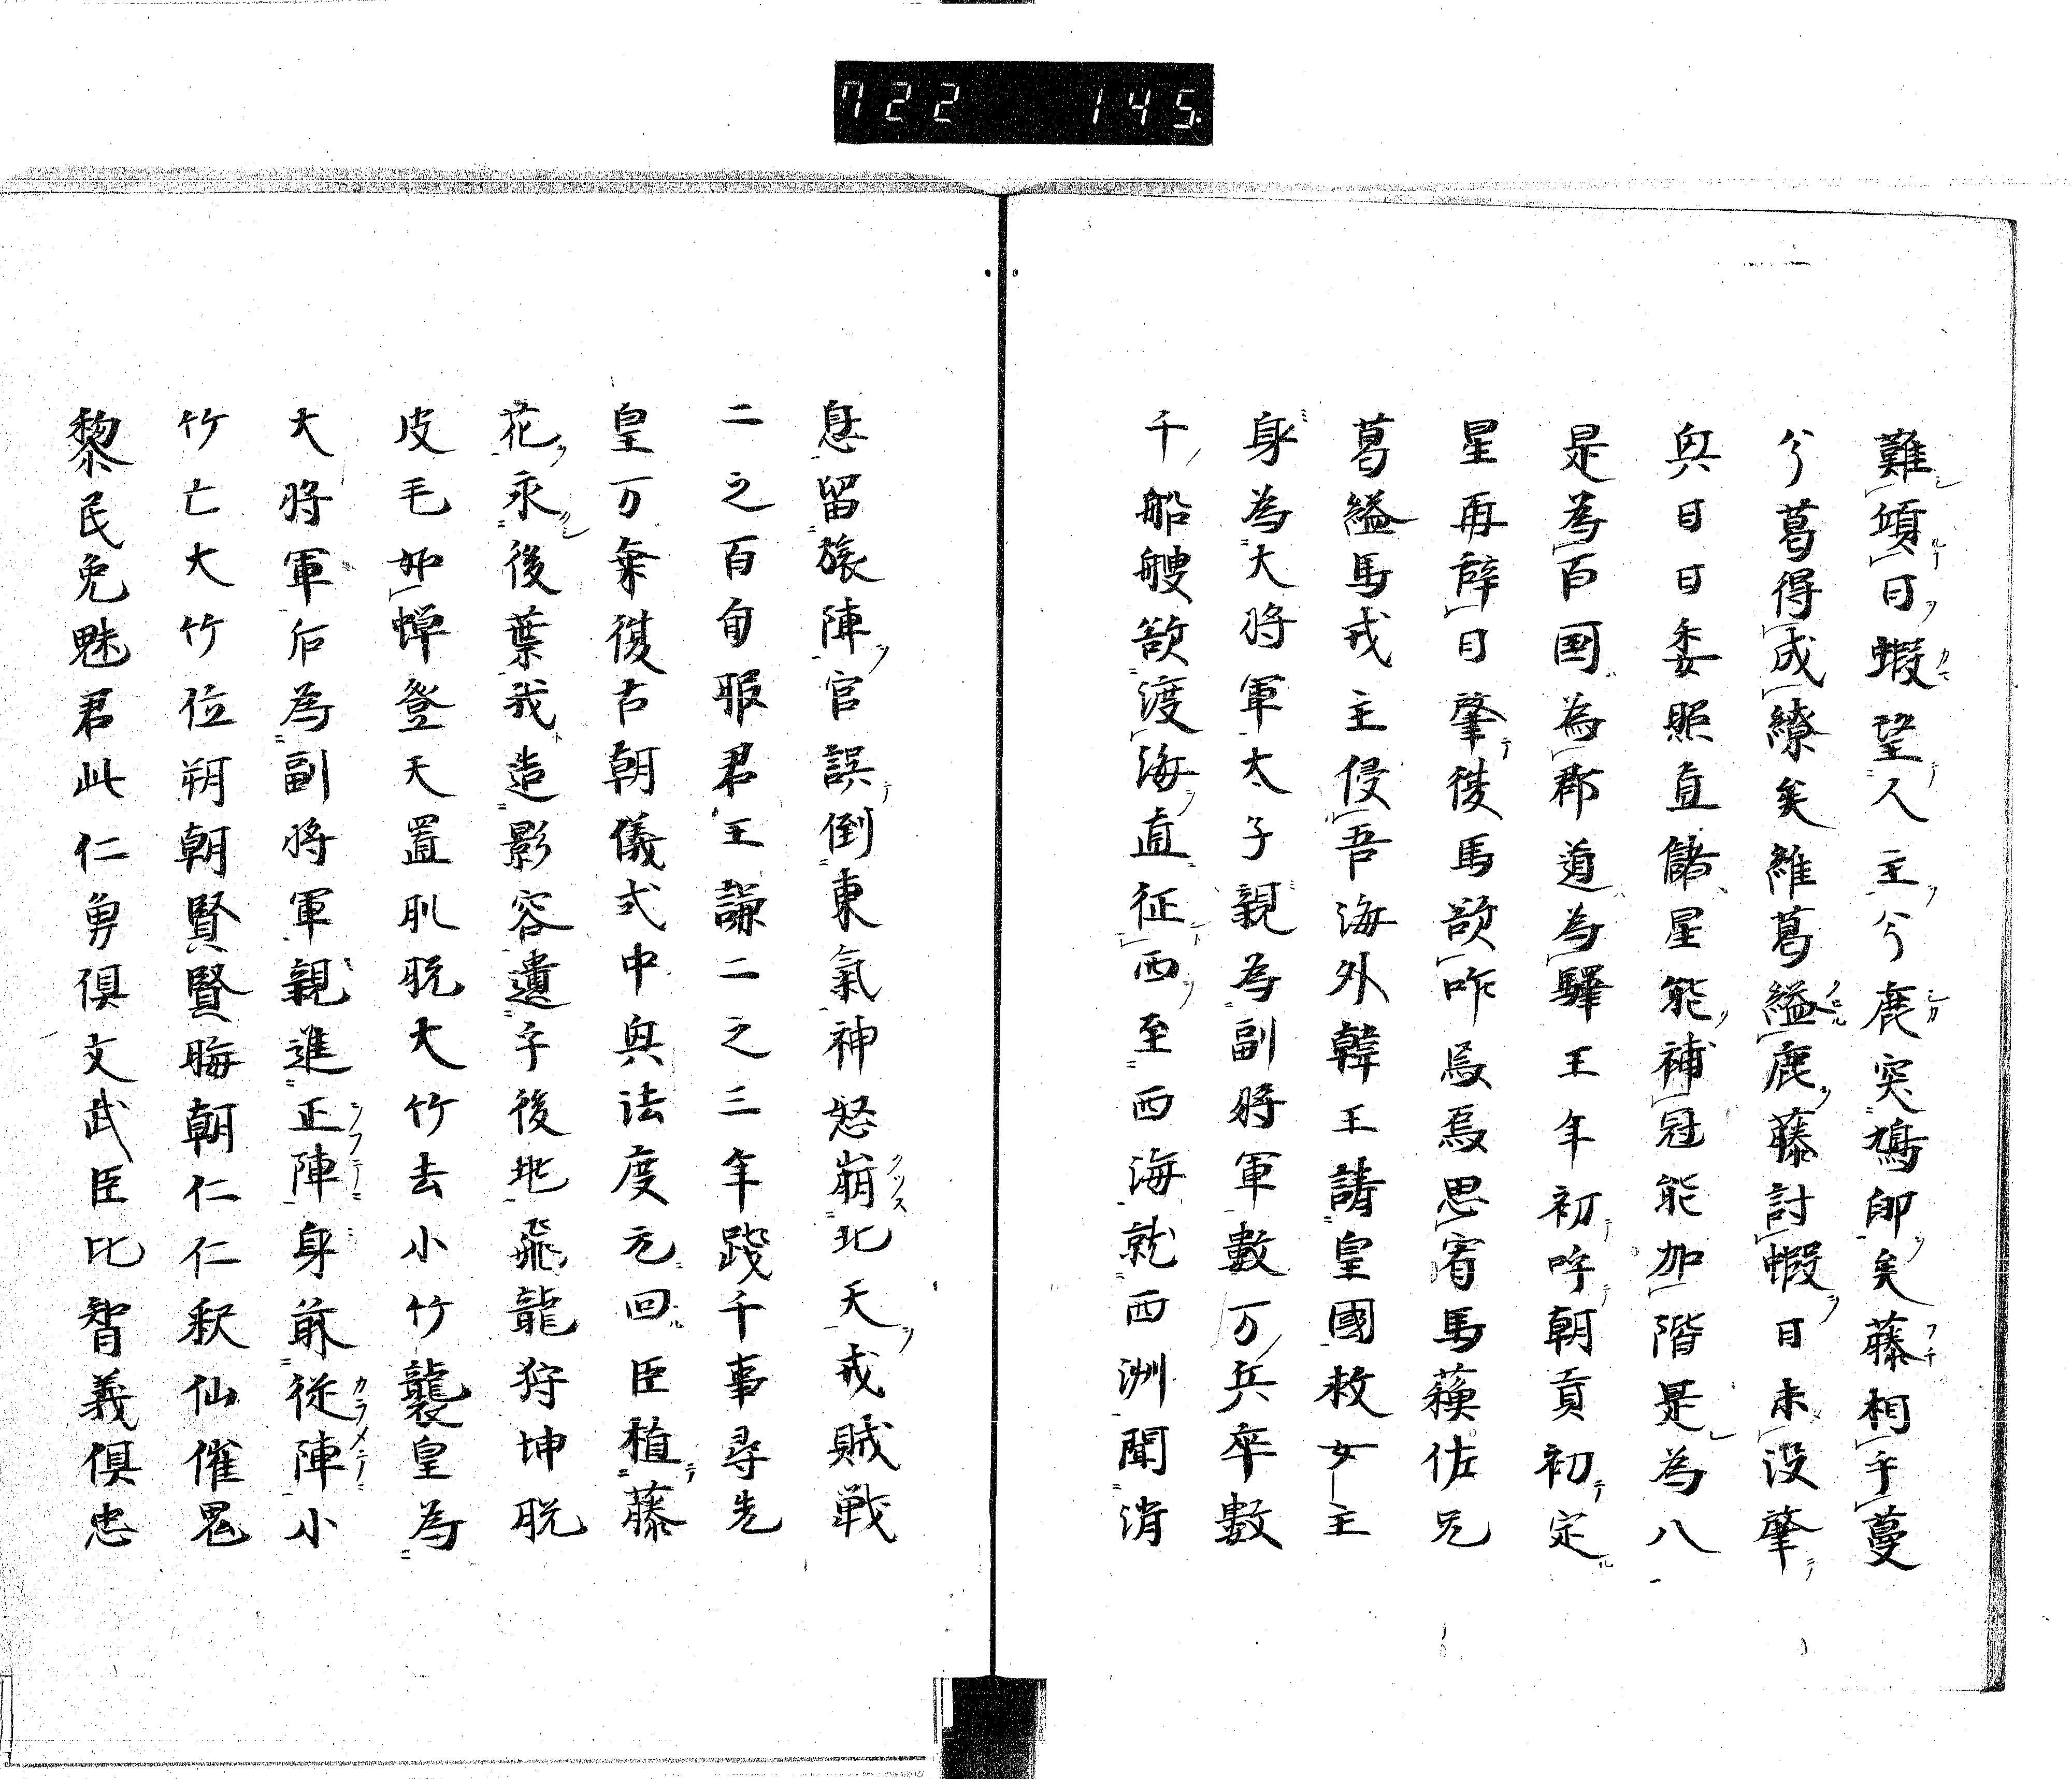 722 145
難傾日蝦望人主兮鹿突鳩卵矣藤柯手蔓
兮葛得成繚矣維葛縊鹿藤討蝦日未没肇
與日日委照直儲星能補冠能加階是為八
是為百国為郡道為驛王年初呼朝貢初定
星再辞日肇後馬欲咋烏烏思宥馬蘓佐兄
葛縊馬戎主侵吾海外韓王請皇國救女主
身為大将軍太子親為副将軍數万兵卒數
千船艘欲渡海直征西至西海就西洲聞消
息留旅陣官誤倒東氣神怒崩北天戎賊戦
二之百旬服君王謙二之三年踐千事尋先
皇万棄復古朝儀式中興法度元回臣植藤
花永後葉我造影容遺子後地飛龍狩坤脱
皮毛如蝉登天置肌脱大竹去小竹襲皇為
大将軍后為副将軍親進正陣身前従陣小
竹亡大竹位朔朝賢賢晦朝仁仁釈仙催鬼
黎民免魅君此仁勇俱文武臣比智義俱忠